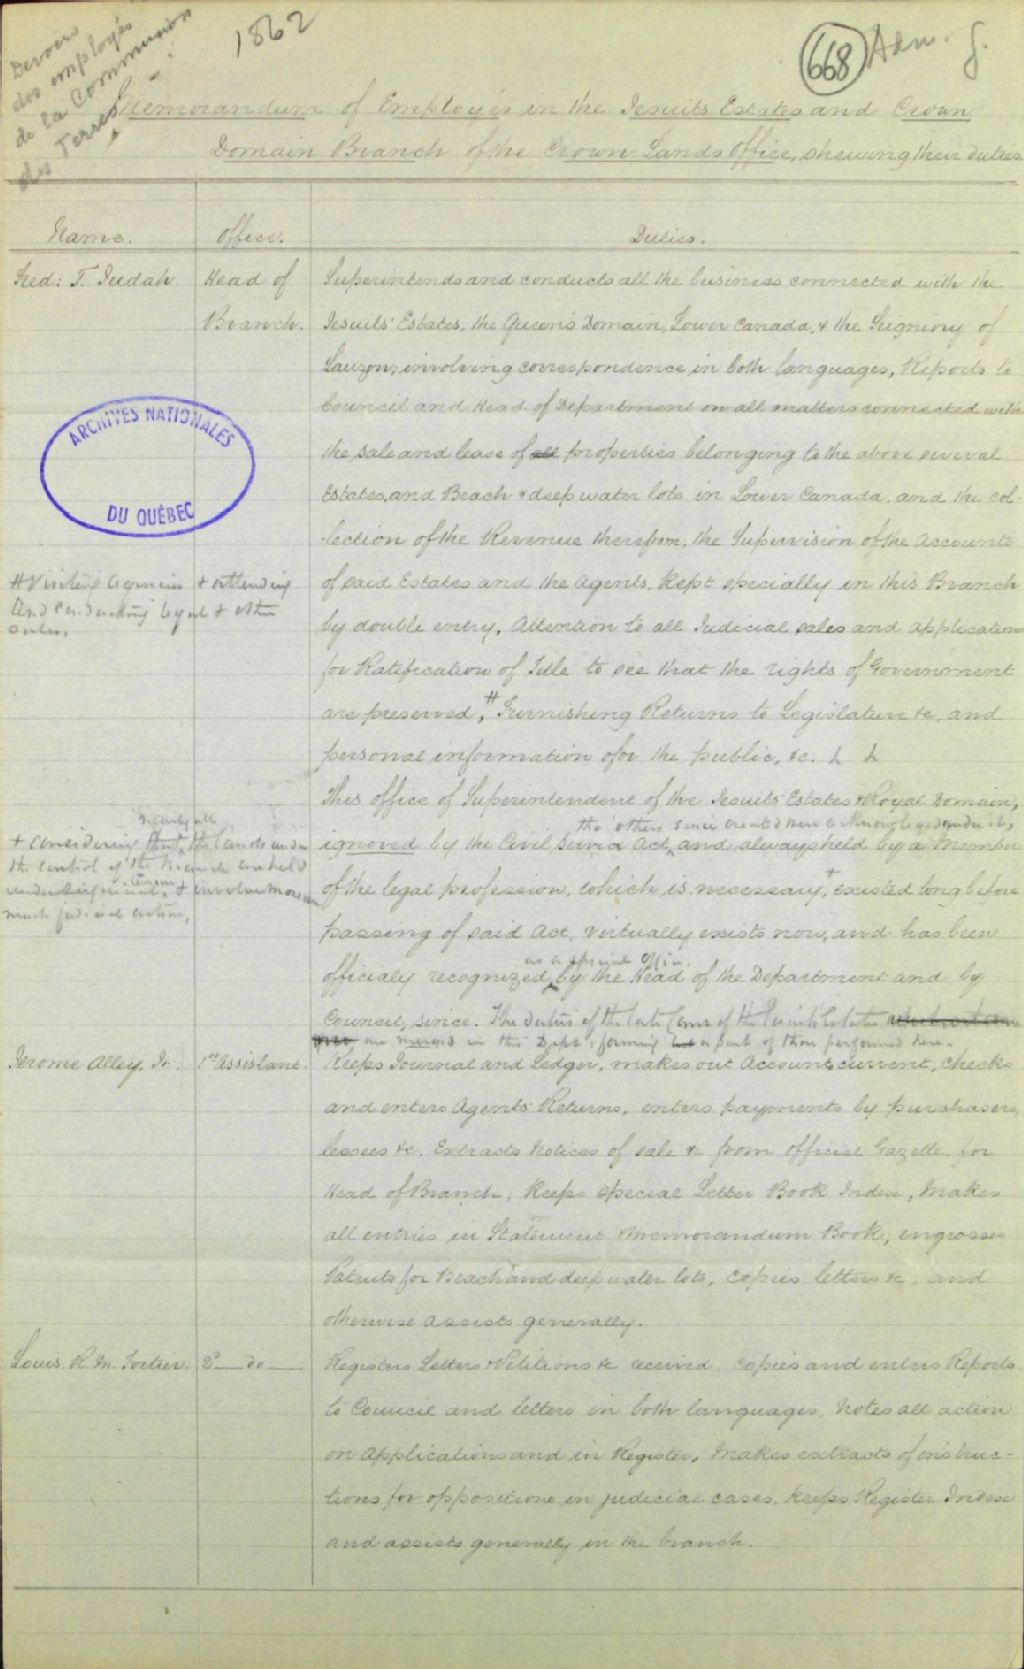 Devoirs
des employés
de la Commission
des Terres
1862
668 Adm. G.
Memorandum of Employés in the Jesuits Estates and Crown
Domain Branch of the Crown Lands Office, shewing their duties
Name.
Office.
Duties.
Fred: T. Judah.
Head of
Branch.
Superintends and conducts all the business connected with the
Jesuits' Estates, the Queen's Domain, Lower Canada, & the Seigniory of
Lauzon; involving correspondence in both languages, Reports to
Council and Head of Department on all matters connected with
the sale and lease of all properties belonging to the above several
Estates, and Beach & deep water lots in Lower Canada, and the col-
lection of the Revenue therefrom; the Supervision of the Accounts
of said Estates and the Agents, Kept specially in this Branch
by double entry, Attention to all Judicial sales and applications
for Ratification of Title to see that the rights of Government
are preserved, # Furnishing Returns to Legislature &c, and
personal information for the public, &c.
ARCHIVES NATIONALES
DU QUÉBEC
# Visiting Agencies & attending
and conducting legal & other
This office of Superintendent of the Jesuits' Estates & Royal Domain,
tho' others since created were acknowledged under it,
ignored by the Civil Service Act, and always held by a Member
of the legal profession, which is necessary, + existed long before
passing of said Act, virtually exists now, and has been
as a special office
officialy recognized, by the Head of the Department and by
Council, since. The duties of the late Comr of the Jesuits' Estates
are merged in this Dept, forming a part of those performed here.
nearly all
+ considering that the lands under
the control of the Branch are held
under & involve
much judicial action,
Jerome Alley, Jr.
1st Assistant.
Keeps Journal and Ledger, makes out Accounts current, checks
and enters Agents' Returns, enters payments by purchasers,
lessees &c. Extracts Notices of sale &c from official Gazette for
Head of Branch; Keeps special Letter Book Index, Makes
all entries in Statement & Memorandum Book, engrosses
Patents for Beach and deep water lots, copies letters &c, and
otherwise assists generally.
Louis R. M. Fortier.
2d — do —
Registers Letters & Petitions &c received, copies and enters Reports
to Council and letters in both languages, Notes all action
on Applications and in Register, Makes extracts of instruc-
tions for oppositions in judicial cases, Keeps Register Index
and assists generally in the branch.